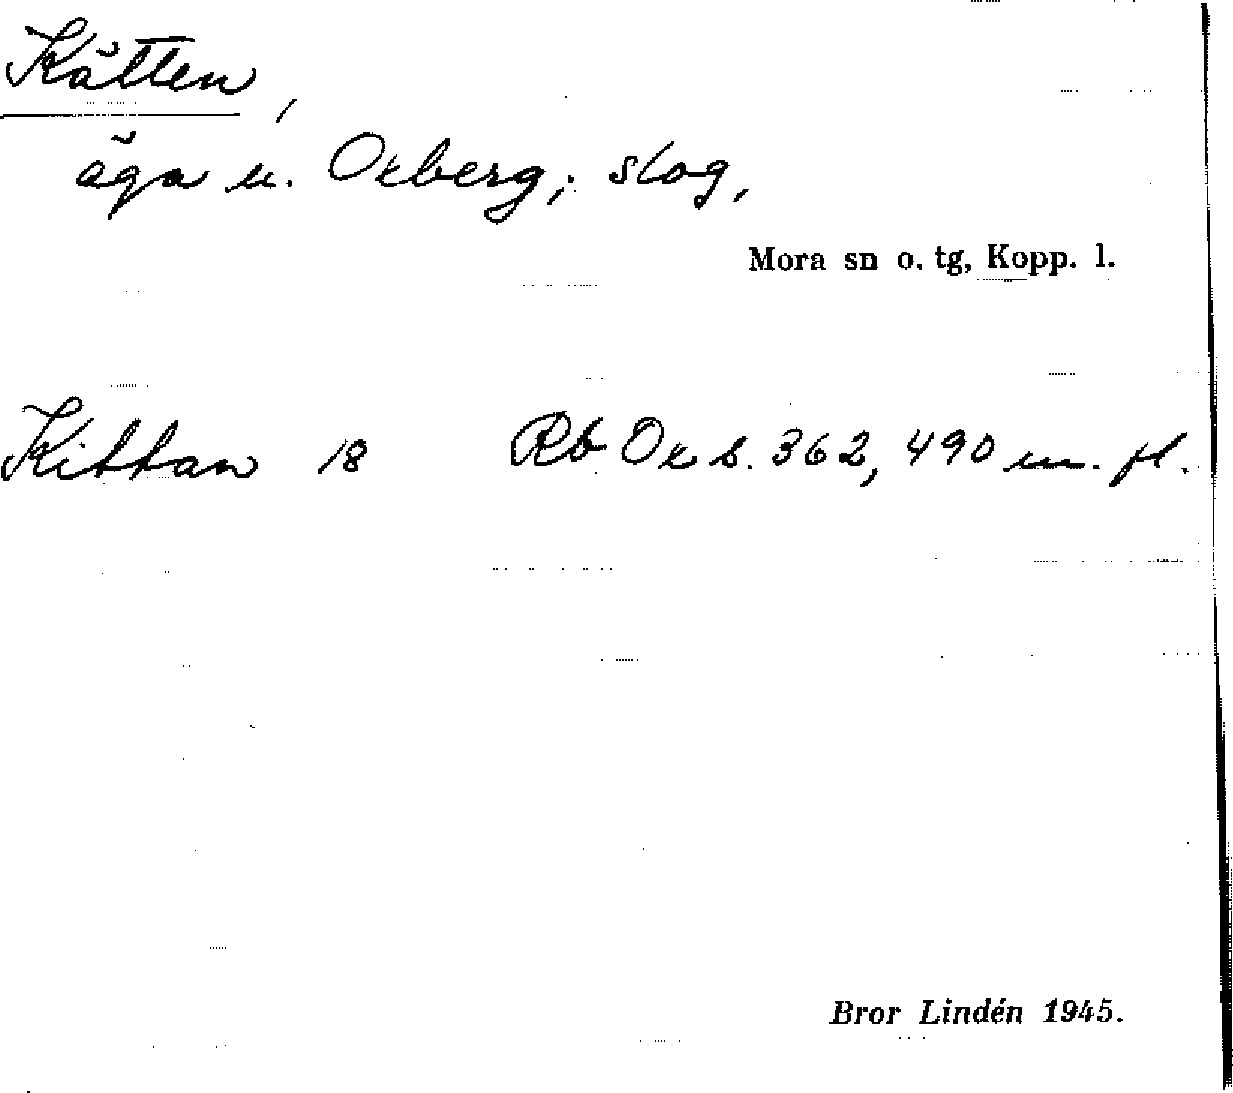 Kätten,
äga u. Oxberg; slog,
Mora sn o. tg, Kopp. l.
Kittan 18 Rb Ox s. 362, 490 m. fl.
Bror Lindén 1945.